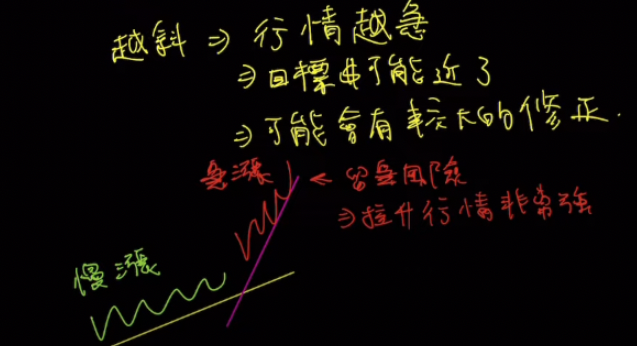 越斜 ⇒ 行情越急
⇒ 目標也可能近了
⇒ 可能會有較大的修正.
急漲 ← 留意風險
⇒ 拉升行情非常強
慢漲